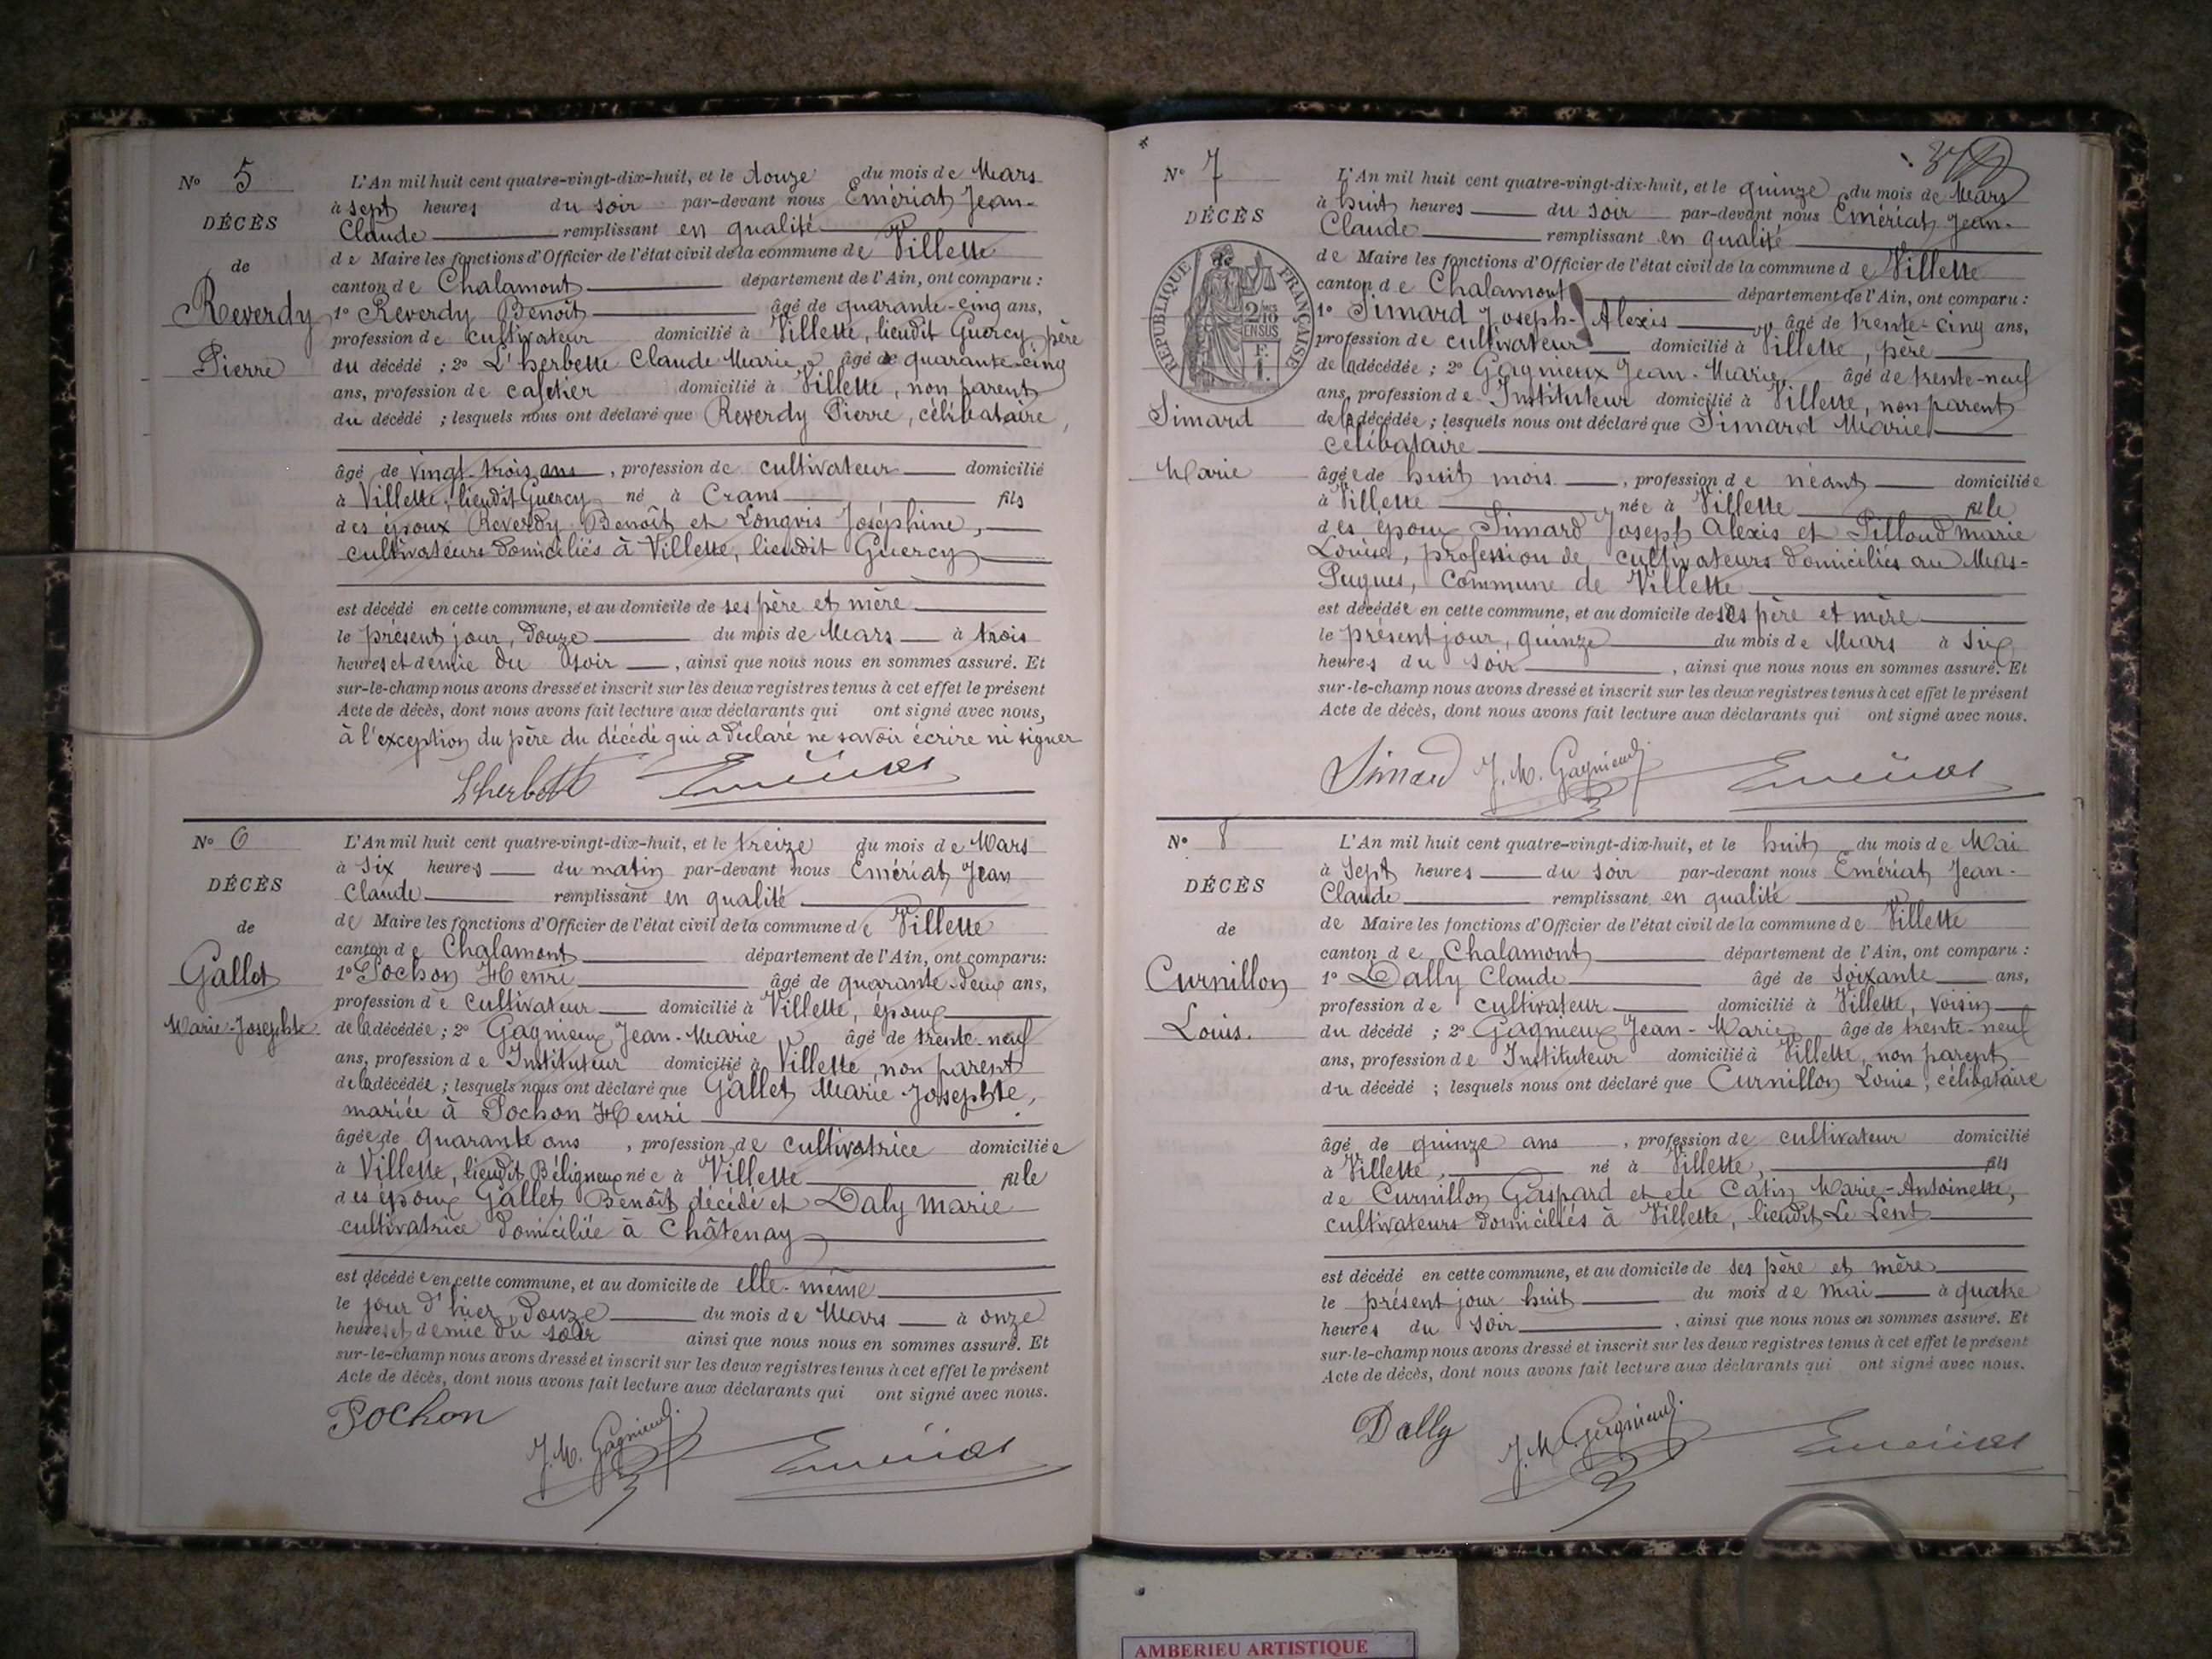 N° 5
DÉCÈS
de
Reverdy
Pierre
L'An mil huit cent quatre-vingt-dix-huit, et le douze du mois de Mars
à sept heures du soir par-devant nous Emériat Jean-
Claude remplissant en qualité
de Maire les fonctions d'Officier de l'état civil de la commune de Villette
canton de Chalamont département de l'Ain, ont comparu :
1° Reverdy Benoît âgé de quarante-cinq ans,
profession de cultivateur domicilié à Villette, lieudit Guercy, père
du décédé ; 2° L'herbette Claude Marie âgé de quarante-cinq
ans, profession de cafetier domicilié à Villette, non parent
du décédé ; lesquels nous ont déclaré que Reverdy Pierre, célibataire,
âgé de vingt-trois ans, profession de cultivateur domicilié
à Villette, lieudit Guercy né à Crans fils
des époux Reverdy Benoît et Longvis Joséphine,
cultivateurs domiciliés à Villette, lieudit Guercy
est décédé en cette commune, et au domicile de ses père et mère
le présent jour, douze du mois de Mars à trois
heures et demie du soir, ainsi que nous nous en sommes assuré. Et
sur-le-champ nous avons dressé et inscrit sur les deux registres tenus à cet effet le présent
Acte de décès, dont nous avons fait lecture aux déclarants qui ont signé avec nous,
à l'exception du père du décédé qui a déclaré ne savoir écrire ni signer
Lherbette Emériat
N° 6
DÉCÈS
de
Gallet
Marie-Josephte
L'An mil huit cent quatre-vingt-dix-huit, et le treize du mois de Mars
à six heures du matin par-devant nous Emériat Jean
Claude remplissant en qualité
de Maire les fonctions d'Officier de l'état civil de la commune de Villette
canton de Chalamont département de l'Ain, ont comparu :
1° Pochon Henri âgé de quarante-deux ans,
profession de cultivateur domicilié à Villette, époux
de la décédée ; 2° Gagnieux Jean-Marie âgé de trente-neuf
ans, profession de Instituteur domicilié à Villette, non parent
de la décédée ; lesquels nous ont déclaré que Gallet Marie Josephte,
mariée à Pochon Henri
âgée de quarante ans, profession de cultivatrice domiciliée
à Villette, lieudit Béligneux née à Villette fille
des époux Gallet Benoît décédé et Daly Marie
cultivatrice domiciliée à Châtenay
est décédée en cette commune, et au domicile de elle-même
le jour d'hier, douze du mois de Mars à onze
heures et demie du soir ainsi que nous nous en sommes assuré. Et
sur-le-champ nous avons dressé et inscrit sur les deux registres tenus à cet effet le présent
Acte de décès, dont nous avons fait lecture aux déclarants qui ont signé avec nous.
Pochon J. M. Gagnieux Emériat
N° 7
DÉCÈS
RÉPUBLIQUE FRANÇAISE
2/10 EN SUS
Simard
Marie
L'An mil huit cent quatre-vingt-dix-huit, et le quinze du mois de Mars
à huit heures du soir par-devant nous Emériat Jean-
Claude remplissant en qualité
de Maire les fonctions d'Officier de l'état civil de la commune de Villette
canton de Chalamont département de l'Ain, ont comparu :
1° Simard Joseph-Alexis âgé de trente-cinq ans,
profession de cultivateur domicilié à Villette, père
de la décédée ; 2° Gagnieux Jean-Marie âgé de trente-neuf
ans, profession de Instituteur domicilié à Villette, non parent
de la décédée ; lesquels nous ont déclaré que Simard Marie
célibataire
âgée de huit mois, profession de néant domiciliée
à Villette née à Villette fille
des époux Simard Joseph Alexis et Pilloud Marie
Louise, profession de cultivateurs domiciliés au Mas-
Pugues, commune de Villette
est décédée en cette commune, et au domicile de ses père et mère
le présent jour, quinze du mois de Mars à six
heures du soir, ainsi que nous nous en sommes assuré. Et
sur-le-champ nous avons dressé et inscrit sur les deux registres tenus à cet effet le présent
Acte de décès, dont nous avons fait lecture aux déclarants qui ont signé avec nous.
Simard J. M. Gagnieux Emériat
N° 8
DÉCÈS
de
Curnillon
Louis.
L'An mil huit cent quatre-vingt-dix-huit, et le huit du mois de Mai
à sept heures du soir par-devant nous Emériat Jean-
Claude remplissant en qualité
de Maire les fonctions d'Officier de l'état civil de la commune de Villette
canton de Chalamont département de l'Ain, ont comparu :
1° Dally Claude âgé de soixante ans,
profession de cultivateur domicilié à Villette, voisin
du décédé ; 2° Gagnieux Jean-Marie âgé de trente-neuf
ans, profession de Instituteur domicilié à Villette, non parent
du décédé ; lesquels nous ont déclaré que Curnillon Louis, célibataire
âgé de quinze ans, profession de cultivateur domicilié
à Villette, né à Villette, fils
de Curnillon Gaspard et de Catin Marie-Antoinette,
cultivateurs domiciliés à Villette, lieudit Le Lent
est décédé en cette commune, et au domicile de ses père et mère
le présent jour huit du mois de mai à quatre
heures du soir, ainsi que nous nous en sommes assuré. Et
sur-le-champ nous avons dressé et inscrit sur les deux registres tenus à cet effet le présent
Acte de décès, dont nous avons fait lecture aux déclarants qui ont signé avec nous.
Dally J. M. Gagnieux Emériat
AMBERIEU ARTISTIQUE